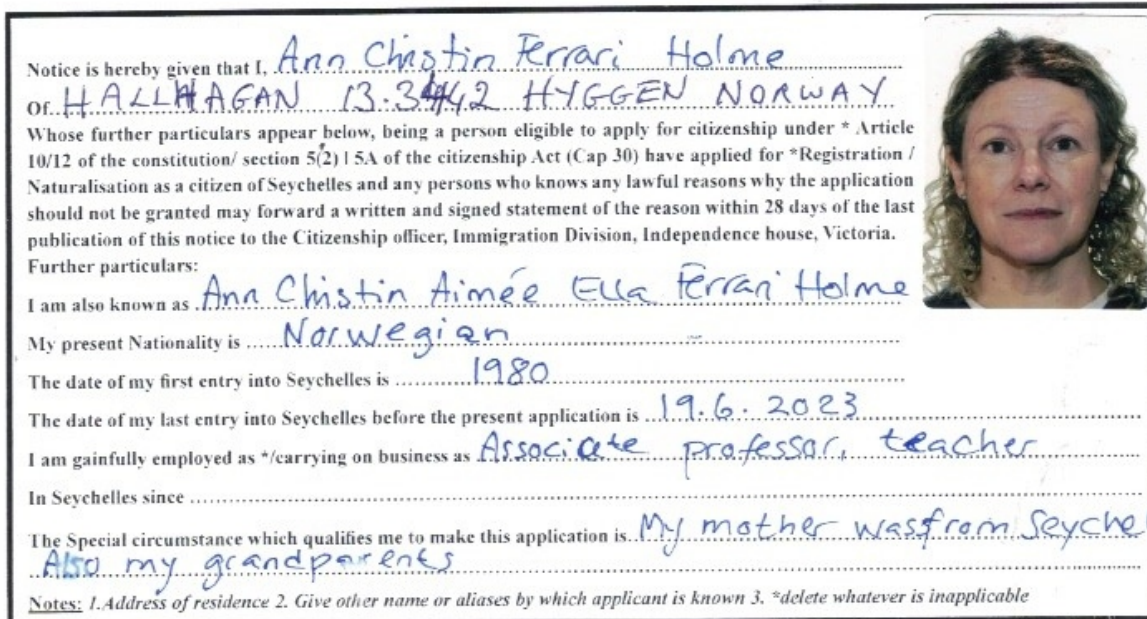 Notice is hereby given that I, Ann Christin Ferrari Holme
Of HALLHAGAN 13. 3442 HYGGEN NORWAY
Whose further particulars appear below, being a person eligible to apply for citizenship under * Article
10/12 of the constitution/ section 5(2) | 5A of the citizenship Act (Cap 30) have applied for *Registration /
Naturalisation as a citizen of Seychelles and any persons who knows any lawful reasons why the application
should not be granted may forward a written and signed statement of the reason within 28 days of the last
publication of this notice to the Citizenship officer, Immigration Division, Independence house, Victoria.
Further particulars:
I am also known as Ann Christin Aimée Ella Ferrari Holme
My present Nationality is Norwegian
The date of my first entry into Seychelles is 1980
The date of my last entry into Seychelles before the present application is 19.6.2023
I am gainfully employed as */carrying on business as Associate professor, teacher
In Seychelles since
The Special circumstance which qualifies me to make this application is My mother was from Seychel
Also my grandparents
Notes: 1.Address of residence 2. Give other name or aliases by which applicant is known 3. *delete whatever is inapplicable